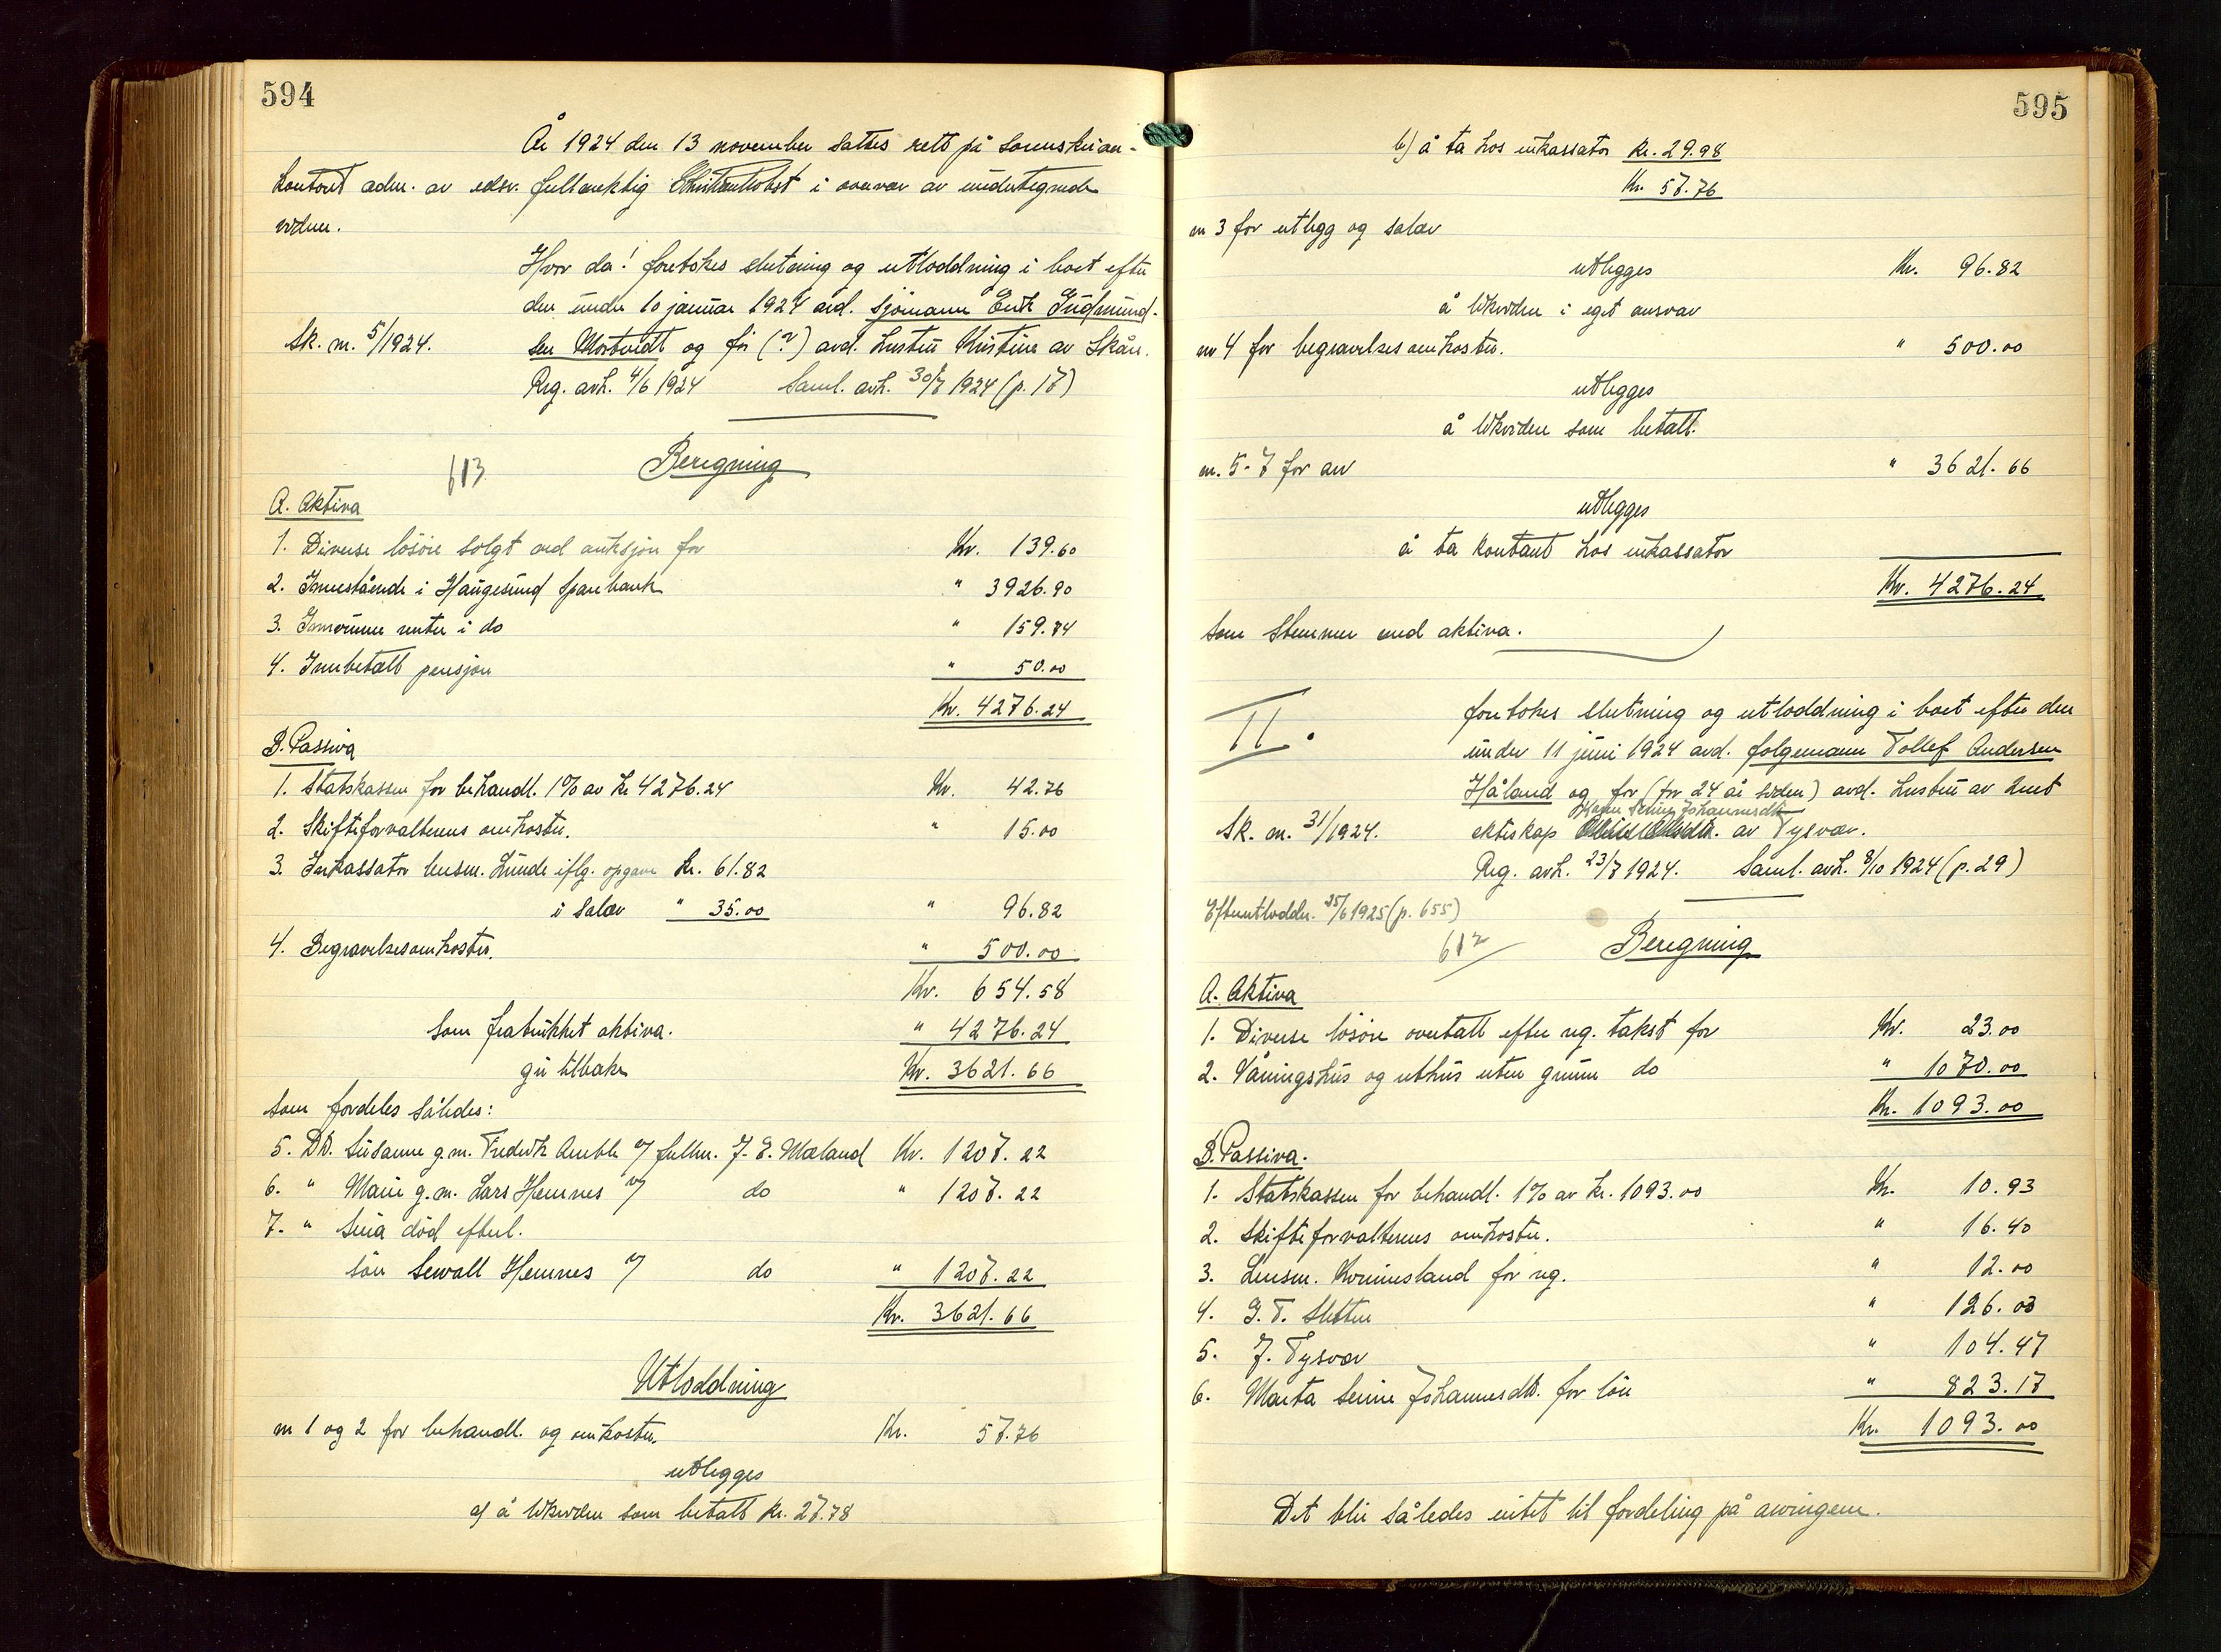 594
År 1924 den 13 november sattes rett på sorenskriver-
kontoret adm. av edsv. fullmektig i overvær av undertegnede
vidner.
Hvor da! foretokes slutning og utloddning i boet efter
den under 10 januar 1924 avd. sjømann Erik Gudmund-
Sk. nr. 5/1924.
sen og før (?) avd. hustru Kristine av Skåre.
Reg. avh. 4/6 1924 Saml. avh. 30/7 1924 (p. 17)
613
Beregning
A. Aktiva
1. Diverse løsøre solgt ved auksjon for Kr. 139.60
2. Innestående i Haugesund sparebank " 3926.90
3. Innvunne renter i do " 159.74
4. Innbetalt pensjon " 50.00
Kr. 4276.24
B. Passiva
1. Statskassen for behandl. 1% av kr 4276.24 Kr. 42.76
2. Skifteforvalterens omkostn. " 15.00
3. Inkassator lensm. Lunde iflg. opgave kr. 61.82
i salær " 35.00 " 96.82
4. Begravelsesomkostn. " 500.00
Kr. 654.58
som fratrukket aktiva. " 4276.24
gir tilbake Kr. 3621.66
som fordeles således:
5. Dtr. Susanne g.m. Fredrik v/ fullm. J. E. Mæland Kr. 1207.22
6. " Marie g.m. Lars Hemnes v/ do " 1207.22
7. " Sina død efterl.
søn Sewall Hemnes v/ do " 1207.22
Kr. 3621.66
Utloddning
nr 1 og 2 for behandl. og omkostn. Kr. 57.76
utlegges
a) å likvidere som betalt kr. 27.78
595
b) å ta hos inkassator kr. 29.98
Kr. 57.76
nr 3 for utlegg og salær
utlegges Kr. 96.82
å likvidere i eget ansvar
nr 4 for begravelsesomkostn. " 500.00
utlegges
å likvidere som betalt.
nr. 5-7 for arv " 3621.66
utlegges
å ta kontant hos inkassator
Kr. 4276.24
som stemmer med aktiva.
II.
foretokes slutning og utloddning i boet efter den
under 11 juni 1924 avd. følgemann Tollef Andersen
Håland og før (for 24 år siden) avd. hustru av 2net
Johannesdtr.
Sk. nr. 31/1924.
ekteskap av Tysvær.
Reg. avh. 23/7 1924. Saml. avh. 8/10 1924 (p. 29)
Efterutloddn. 25/6 1925 (p. 655)
612
Beregning
A. Aktiva
1. Diverse løsøre overtatt efter reg. takst for Kr. 23.00
2. Våningshus og uthus uten grunn do " 1070.00
Kr. 1093.00
B. Passiva.
1. Statskassen for behandl. 1% av kr. 1093.00 Kr. 10.93
2. Skifteforvalterens omkostn. " 16.40
3. Lensm. for reg. " 12.00
4. G. T. Sletten " 126.03
5. J. Tysvær " 104.47
6. Marta Serine Johannesdtr. for løn " 823.17
Kr. 1093.00
Det blir således intet til fordeling på arvingene.